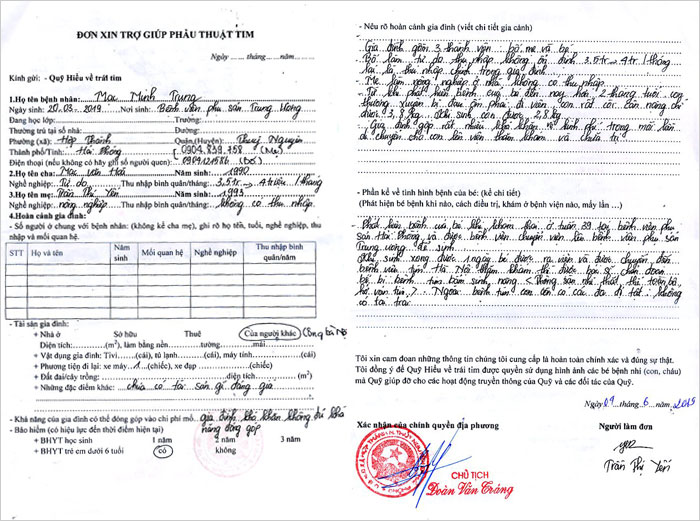 ĐƠN XIN TRỢ GIÚP PHẪU THUẬT TIM
Ngày ...... tháng...... năm......
Kính gửi: - Quỹ Hiểu về trái tim
1.Họ tên bệnh nhân: Mạc Minh Trung
Ngày sinh: 20-03-2019 Nơi sinh: Bệnh viện phụ sản Trung Ương
Đang học lớp: Trường:
Thường trú tại số nhà: Đường:
Phường (xã): Hợp Thành Quận (Huyện): Thuỷ Nguyên
Thành phố/Tỉnh: Hải Phòng 0904.839.758 (Mẹ)
Điện thoại (nếu không có hãy ghi số người quen): 0949.124.586 (Bố)
2.Họ tên cha: Mạc Văn Hải Năm sinh: 1990
Nghề nghiệp: Tự do Thu nhập bình quân/tháng: 3,5tr → 4triệu 1 tháng
3.Họ tên mẹ: Trần Thị Yến Năm sinh: 1993
Nghề nghiệp: nông nghiệp Thu nhập bình quân/tháng: không có thu nhập.
4.Hoàn cảnh gia đình:
- Số người ở chung với bệnh nhân: (không kể cha mẹ), ghi rõ họ tên, tuổi, nghề nghiệp, thu
nhập và mối quan hệ.
STT Họ và tên Năm sinh Mối quan hệ Nghề nghiệp Thu nhập bình quân/năm
- Tài sản gia đình:
+ Nhà ở Sở hữu Thuê Của người khác (Ông bà Nội)
Diện tích:......(m²), làm bằng nền............tường............mái............
+ Vật dụng gia đình: Tivi......(cái), tủ lạnh......(cái), máy tính......(cái)
+ Phương tiện đi lại: xe máy...1...(chiếc), xe đạp ......(chiếc)
+ Đất đai/cây trồng:............diện tích ............(m²)
+ Những đặc điểm khác: chưa có tài sản gì đáng giá
- Khả năng của gia đình có thể đóng góp vào chi phí mổ. gia đình khó khăn không đủ khả
năng đóng góp
- Bảo hiểm (có hiệu lực đến thời điểm hiện tại)
+ BHYT học sinh 1 năm 2 năm 3 năm
+ BHYT trẻ em dưới 6 tuổi có không
- Nêu rõ hoàn cảnh gia đình (viết chi tiết gia cảnh)
Gia đình gồm 3 thành viên: bố mẹ và bé.
Bố làm tự do thu nhập không ổn định 3,5tr → 4tr 1 tháng
là thu nhập chính trong gia đình.
Mẹ làm nông nghiệp ở nhà không có thu nhập.
Từ khi phát hiện bệnh của bé đến nay hơn 2 tháng tuổi con
thường xuyên bị đau ốm phải đi viện con rất còi cân nặng chỉ
được 3,8 kg. Khi sinh con được 2,8 kg.
Gia đình gặp rất nhiều khó khăn về kinh phí trong mỗi lần
di chuyển cho con lên viện thăm khám và chữa trị.
- Phần kể về tình hình bệnh của bé: (kể chi tiết)
(Phát hiện bé bệnh khi nào, cách điều trị, khám ở bệnh viện nào, mấy lần…)
Phát hiện bệnh của bé khi khám thai ở tuần 39 tại bệnh viện phụ
sản Hải Phòng và được bệnh viện chuyển viện lên bệnh viện phụ sản
Trung ương để sinh.
Khi sinh xong được ngày bé được ra viện và được chuyển đến
bệnh viện tim Hà Nội thăm khám thì được bác sĩ chẩn đoán
bé bị bệnh tim bẩm sinh nặng < Thông sàn nhĩ thất thể toàn bộ,
hở van tim >. Ngoài bệnh tim con còn có các đa dị tật không
có tai trái
Tôi xin cam đoan những thông tin chúng tôi cung cấp là hoàn toàn chính xác và đúng sự thật.
Tôi đồng ý để Quỹ Hiểu về trái tim được quyền sử dụng hình ảnh các bé bệnh nhi (con, cháu)
mà Quỹ giúp đỡ cho các hoạt động truyền thông của Quỹ và các đối tác của Quỹ.
Ngày 19 tháng 6 năm 2019
Xác nhận của chính quyền địa phương Người làm đơn
CHỦ TỊCH
Đoàn Văn Tráng
Yến
Trần Thị Yến